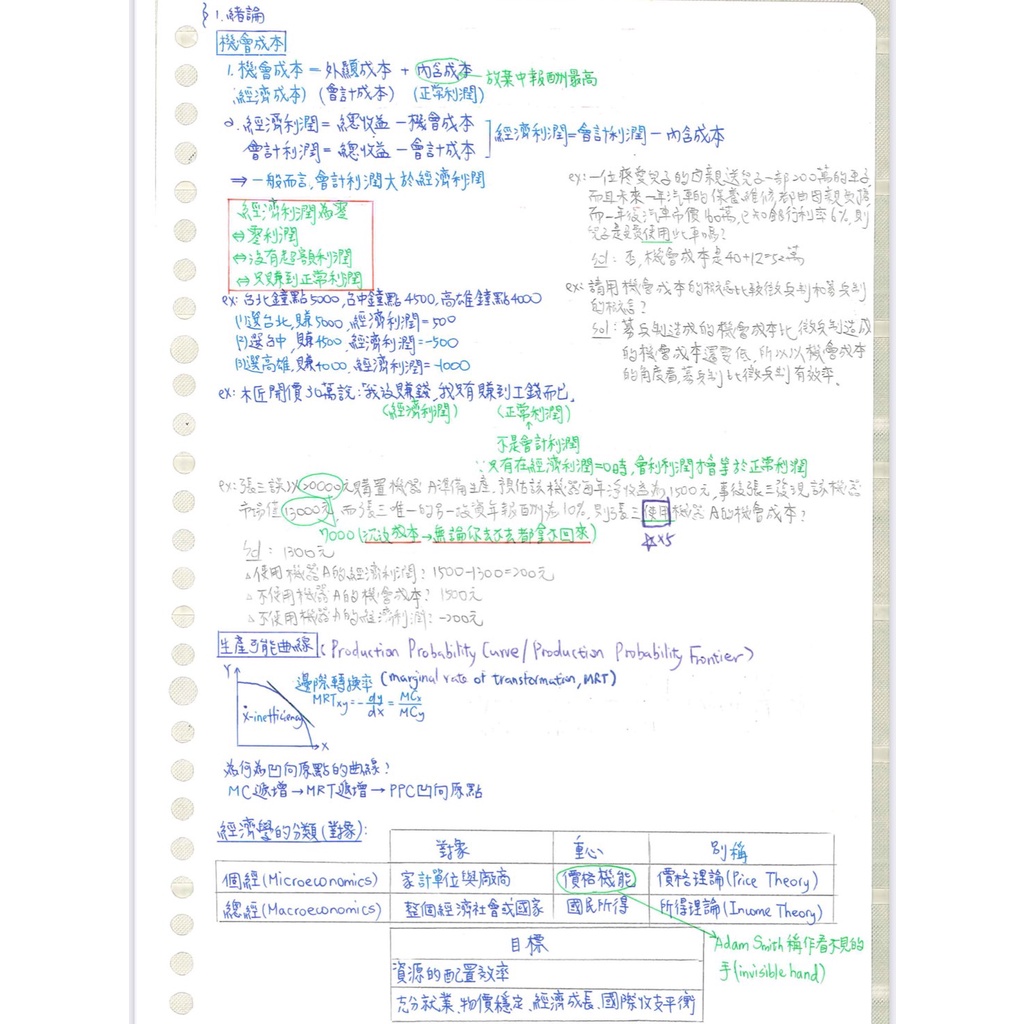 1. 緒論
機會成本
1. 機會成本 = 外顯成本 + 內含成本 放棄中報酬最高
(經濟成本) (會計成本) (正常利潤)
2. 經濟利潤 = 總收益 - 機會成本
會計利潤 = 總收益 - 會計成本
經濟利潤 = 會計利潤 - 內含成本
⇒ 一般而言,會計利潤大於經濟利潤
經濟利潤為零
⇔ 零利潤
⇔ 沒有超額利潤
⇔ 只賺到正常利潤
ex: 一位疼愛兒子的母親送兒子一部200萬的車子,
而且未來一年汽車的保養維修都由母親負擔,
而一年後汽車市價160萬,已知銀行利率6%,則
兒子是免費使用此車嗎?
sol: 否,機會成本是40+12=52萬
ex: 請用機會成本的概念比較徵兵制和募兵制
的概念?
sol: 募兵制造成的機會成本比徵兵制造成
的機會成本還要低,所以以機會成本
的角度看,募兵制比徵兵制有效率.
ex: 台北鐘點5000,台中鐘點4500,高雄鐘點4000
(1)選台北,賺5000,經濟利潤=500
(2)選台中,賺4500,經濟利潤=-500
(3)選高雄,賺4000,經濟利潤=-1000
ex: 木匠開價30萬說:我沒賺錢,我只有賺到工錢而已.
(經濟利潤) (正常利潤)
↑
不是會計利潤
∵只有在經濟利潤=0時,會計利潤才會等於正常利潤
ex: 張三談以20000元購置機器A準備生產,預估該機器每年淨收益為1500元,事後張三發現該機器
市場值13000元,而張三唯一的另一投資年報酬為10%,則張三使用機器A的機會成本?
7000(沉沒成本→無論你去不去都拿不回來)
☆x5
Sol: 1300元
△使用機器A的經濟利潤? 1500-1300=200元
△不使用機器A的機會成本? 1500元
△不使用機器A的經濟利潤? -200元
生產可能曲線 (Production Probability Curve/Production Probability Frontier)
Y
邊際轉換率 (marginal rate of transformation, MRT)
MRTxy = -dy/dx = MCx/MCy
x-inefficiency
X
為何為凹向原點的曲線?
MC遞增→MRT遞增→PPC凹向原點
經濟學的分類(對象):
對象 重心 別稱
個經(Microeconomics) 家計單位與廠商 價格機能 價格理論(Price Theory)
總經(Macroeconomics) 整個經濟社會或國家 國民所得 所得理論(Income Theory)
目標
資源的配置效率
充分就業、物價穩定、經濟成長、國際收支平衡
Adam Smith 稱作看不見的
手(invisible hand)